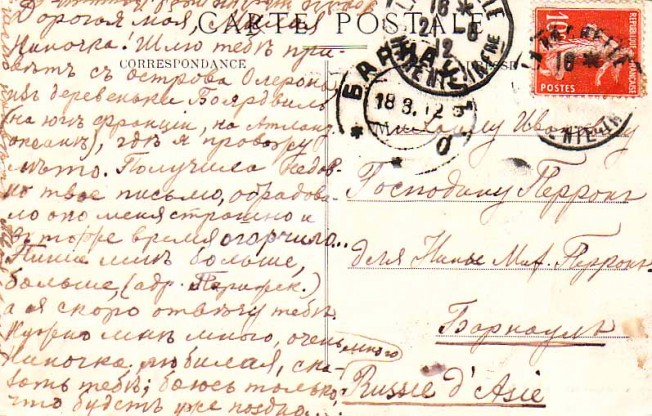 CARTE POSTALE
CORRESPONDANCE
Дорогая моя, милая
Ниночка! Шлю тебѣ при-
вѣтъ съ острова Олерона
изъ деревеньки Боярдвиль
(на югѣ Франціи, на Атлант.
океанѣ), гдѣ я провожу
лѣто. Получила недов-
но твое письмо, обрадова-
ло оно меня страшно и
въ тоже время огорчило...
Пиши мнѣ больше,
больше, (адр. Парижск.)
а я скоро отвѣчу тебѣ
Нужно мнѣ много, очень
много
Ниночка любимая, ска-
зать тебѣ; боюсь только,
что будетъ уже поздно...
16 *
21 -8
12
БАРНАУЛ
18.8.12
16 *
10
POSTES
Михаилу Ивановичу
Господину Перронъ
для Нины Мих. Перронъ
Барнаулъ
Russie d'Asie